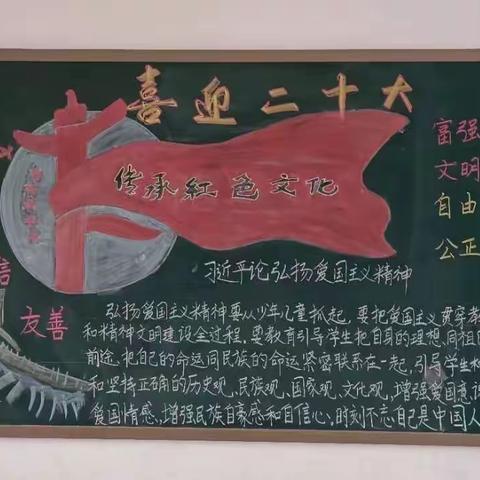 喜迎二十大
传承红色文化
富强
文明
自由
公正
信
友善
习近平论弘扬爱国主义精神
弘扬爱国主义精神要从少年儿童抓起,要把爱国主义贯穿教
和精神文明建设全过程。要教育引导学生把自身的理想同祖国
前途,把自己的命运同民族的命运紧密联系在一起,引导学生树
和坚持正确的历史观、民族观、国家观、文化观,增强爱国意识
爱国情感,增强民族自豪感和自信心。时刻不忘自己是中国人